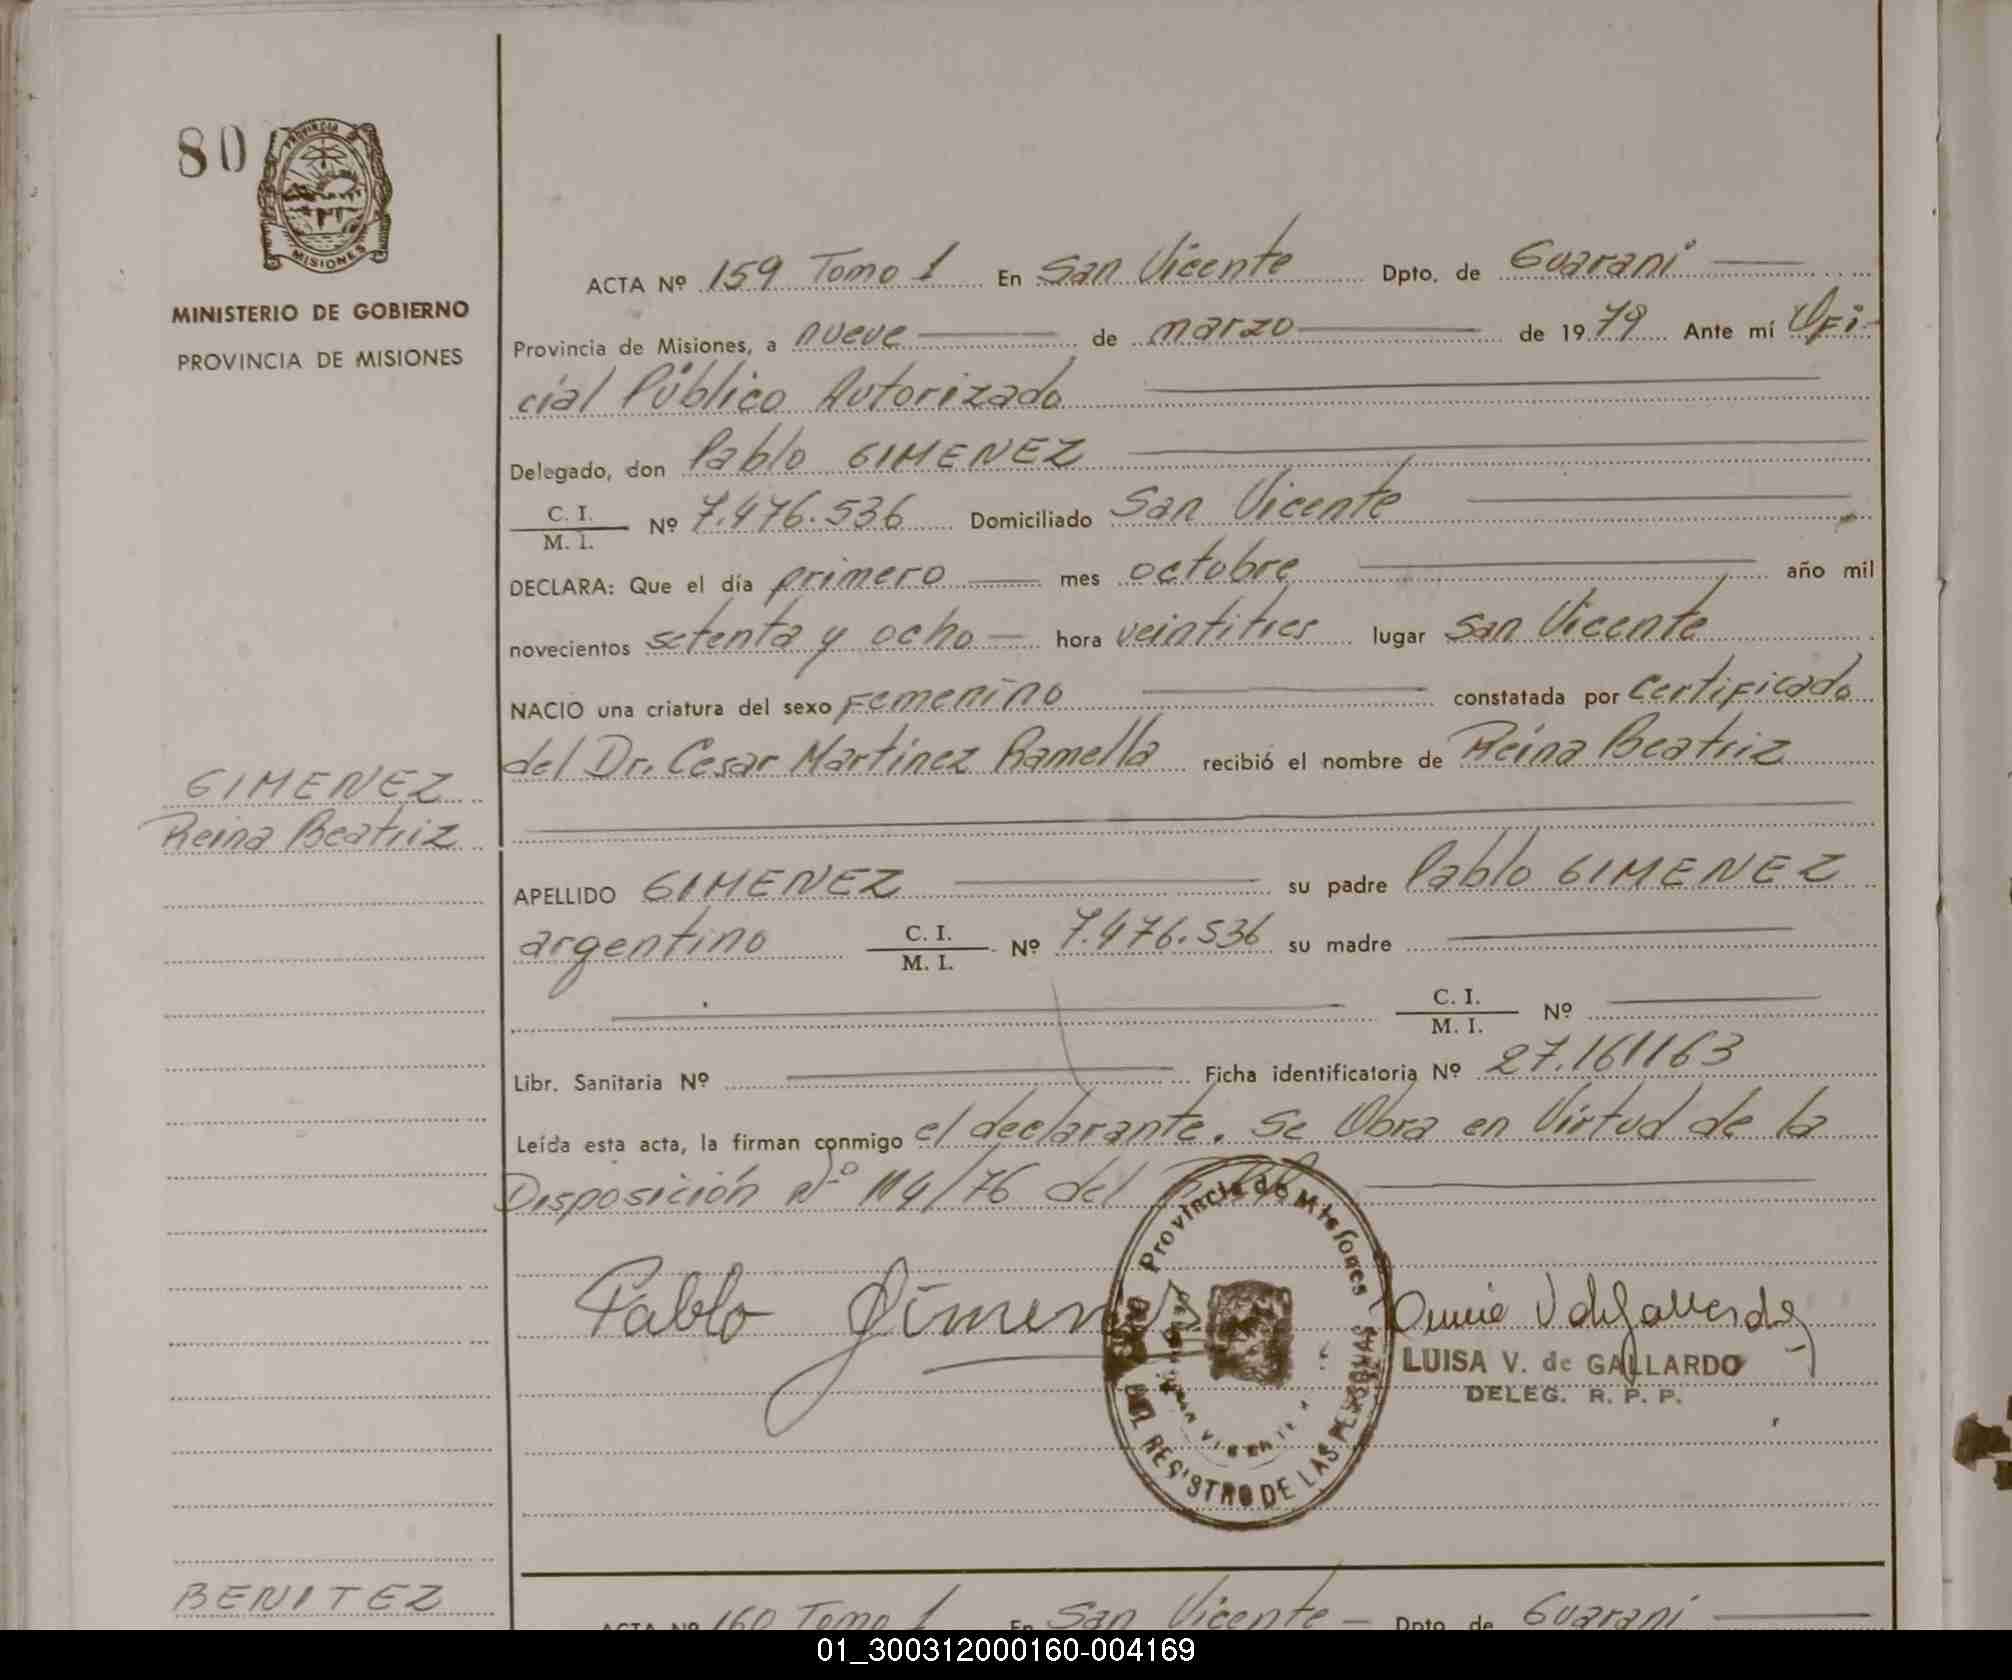 80
PROVINCIA DE
MISIONES
MINISTERIO DE GOBIERNO
PROVINCIA DE MISIONES
ACTA Nº 159 Tomo 1 En San Vicente Dpto. de Guaraní
Provincia de Misiones, a nueve de marzo de 1979 Ante mí Ofi-
cial Público Autorizado
Delegado, don Pablo GIMENEZ
C. I.
M. I. Nº 7.476.536 Domiciliado San Vicente
DECLARA: Que el día primero mes octubre año mil
novecientos setenta y ocho hora veintitres lugar San Vicente
NACIO una criatura del sexo Femenino constatada por Certificado
del Dr. Cesar Martinez Ramella recibió el nombre de Reina Beatriz
GIMENEZ
Reina Beatriz
APELLIDO GIMENEZ su padre Pablo GIMENEZ
argentino C. I.
M. I. Nº 7.476.536 su madre
C. I.
M. I. Nº
Libr. Sanitaria Nº Ficha identificatoria Nº 27.161163
Leída esta acta, la firman conmigo el declarante. Se Obra en Virtud de la
Disposición Nº 114/76 del
Pablo Gimenez
Provincia de Misiones
DEL REGISTRO DE LAS PERSONAS
SAN VICENTE
LUISA V. de GALLARDO
DELEG. R. P. P.
BENITEZ
ACTA Nº 160 Tomo 1 En San Vicente Dpto. de Guaraní
01_300312000160-004169